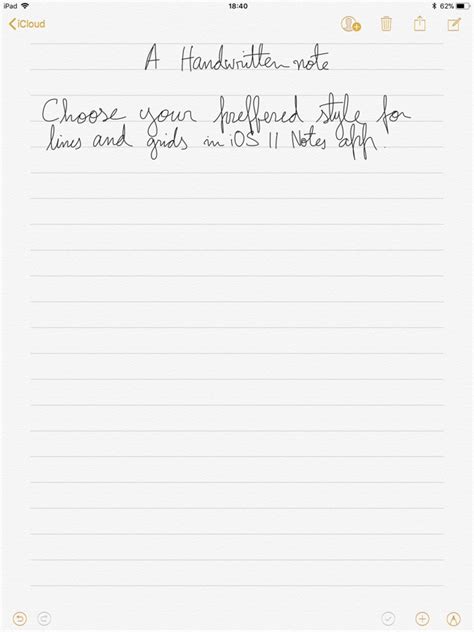 iPad 18:40 62%
iCloud
A Handwritten note
Choose your preffered style for
lines and grids in iOS 11 Notes app.